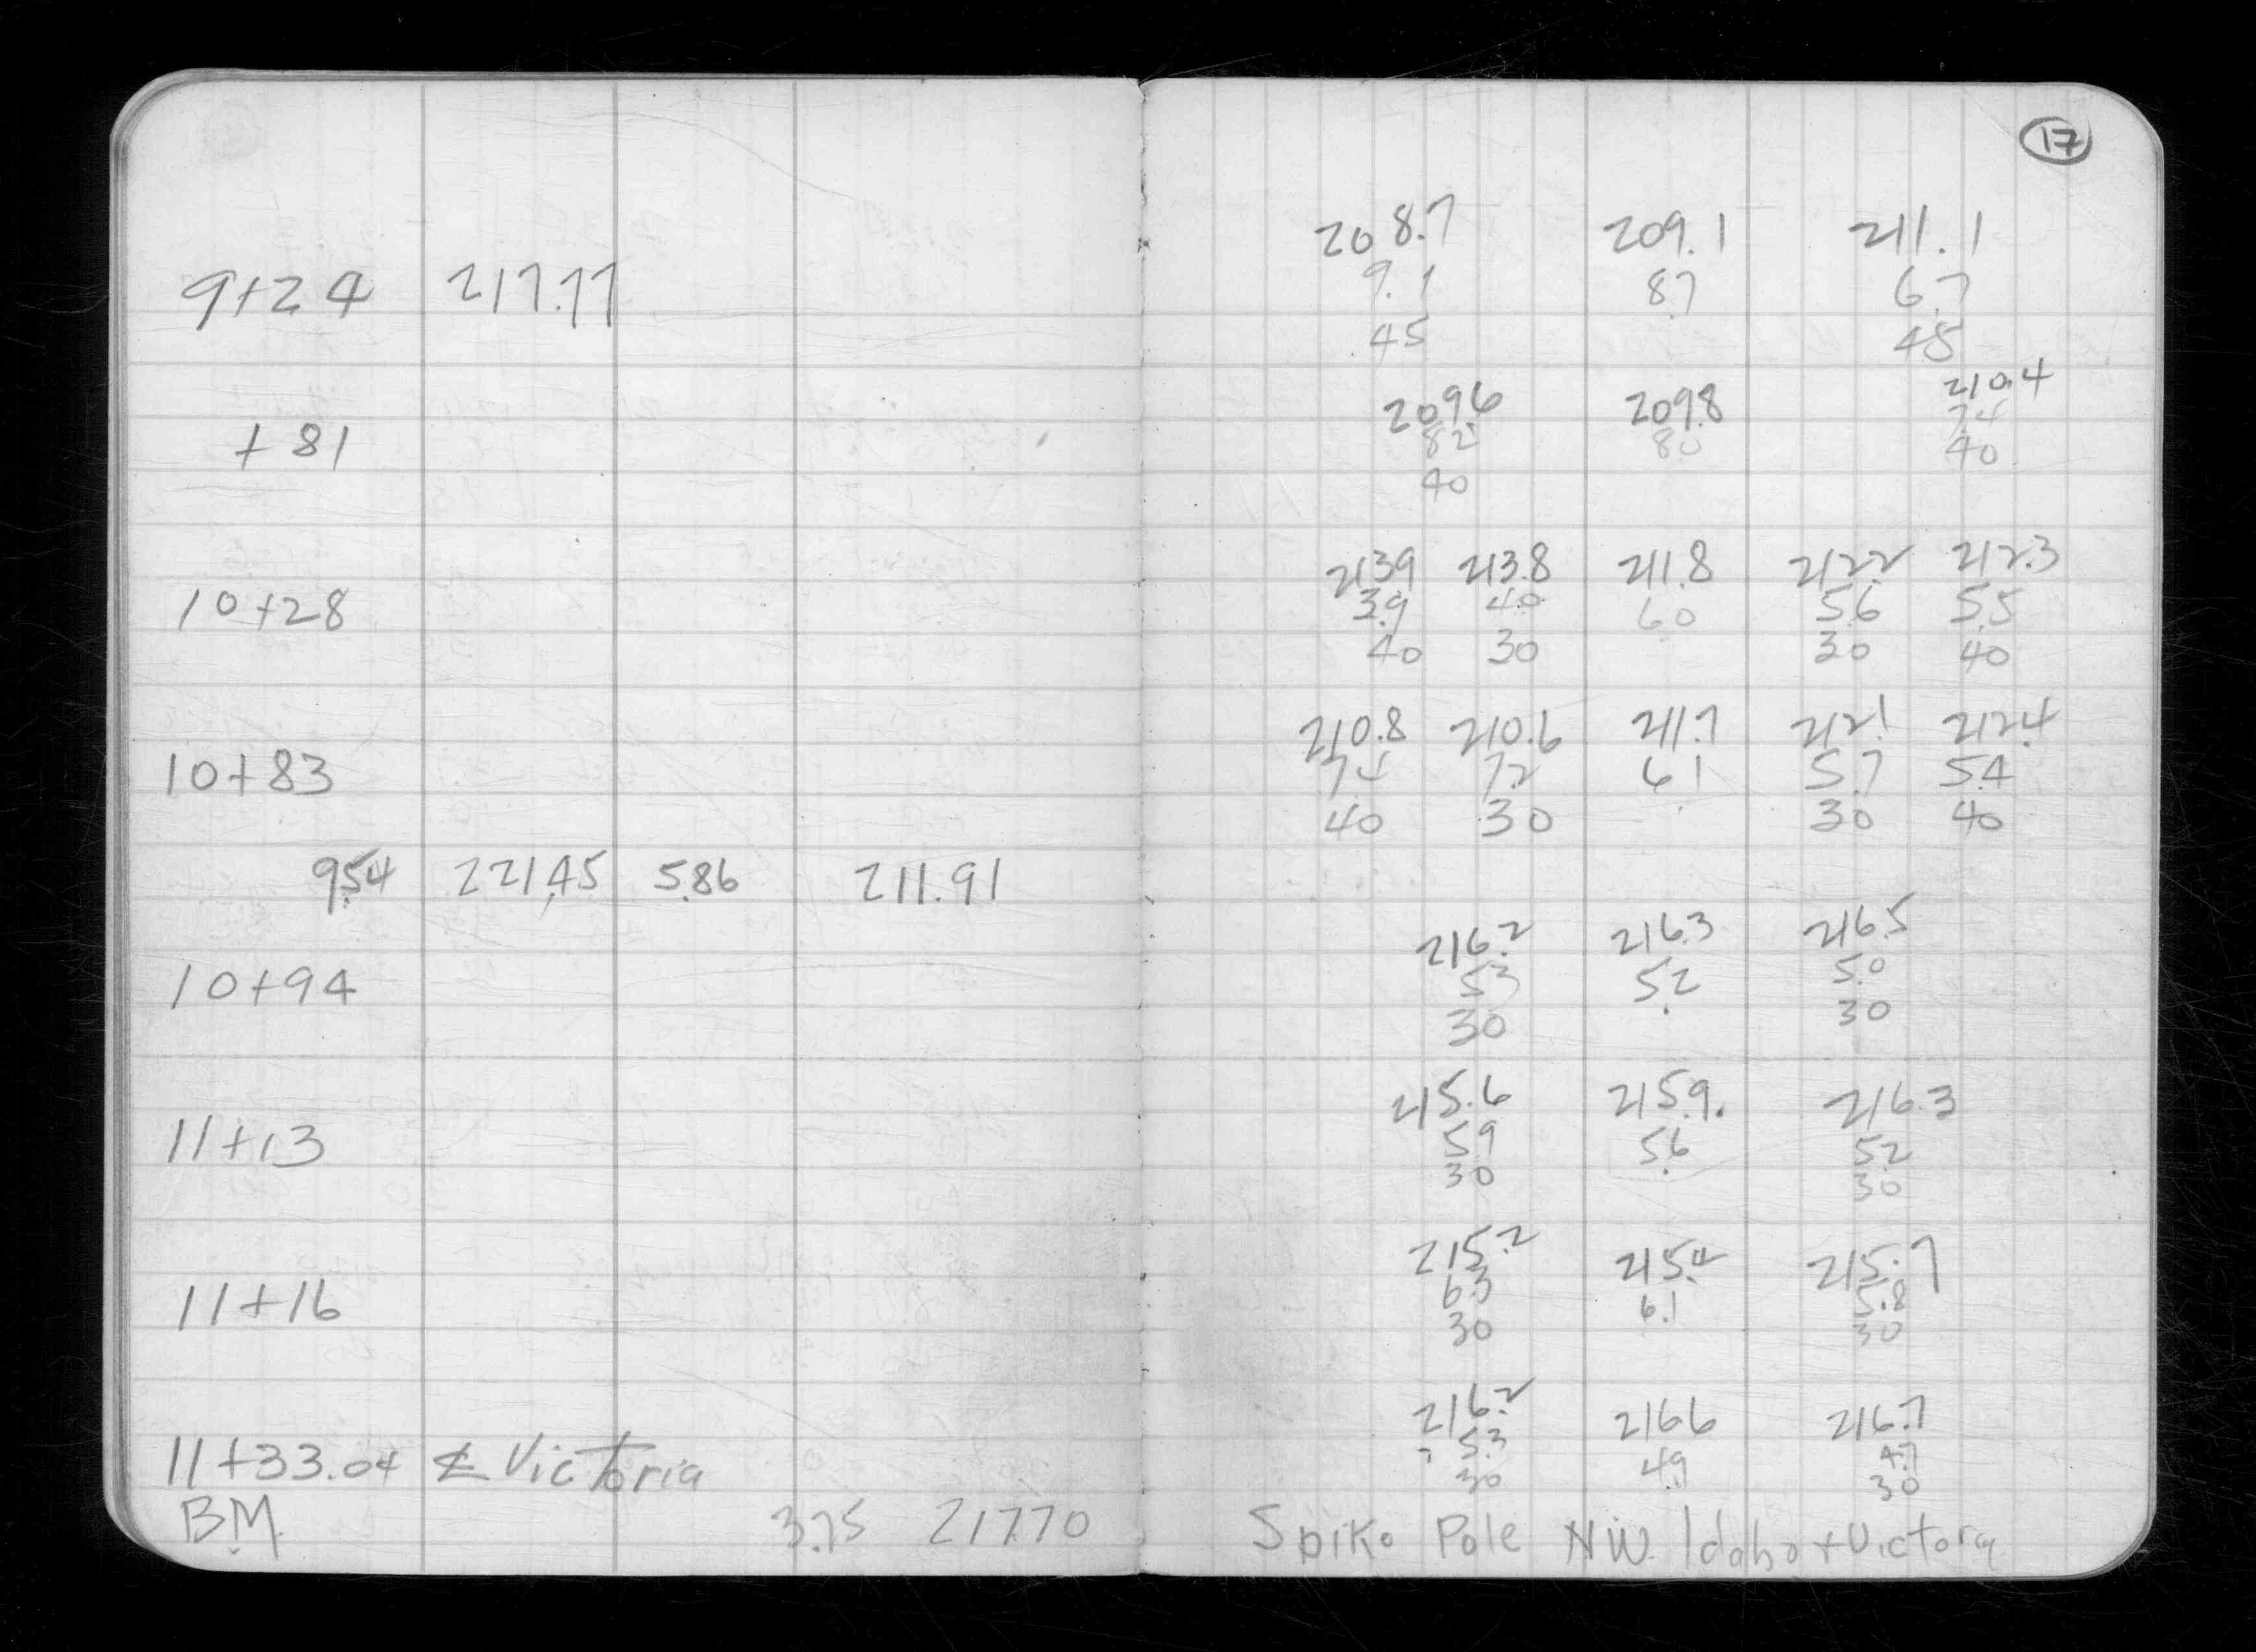 17
208.7 209.1 211.1
9+24 217.77 9.1 8.7 6.7
45 45
209.6 209.8 210.4
+81 8.2 8.0 7.4
40 40
213.9 213.8 211.8 212.2 212.3
10+28 3.9 4.0 6.0 5.6 5.5
40 30 30 40
210.8 210.6 211.7 212.1 212.4
10+83 7.4 7.2 6.1 5.7 5.4
40 30 30 40
9.54 221.45 5.86 211.91
216.2 216.3 216.5
10+94 5.3 5.2 5.0
30 30
215.6 215.9. 216.3
11+13 5.9 5.6 5.2
30 30
215.2 215.4 215.7
11+16 6.3 6.1 5.8
30 30
216.2 216.6 216.7
11+33.04 ℄ Victoria 5.3 4.9 4.7
30 30
B.M. 3.75 217.70 Spike Pole N.W. Idaho + Victoria